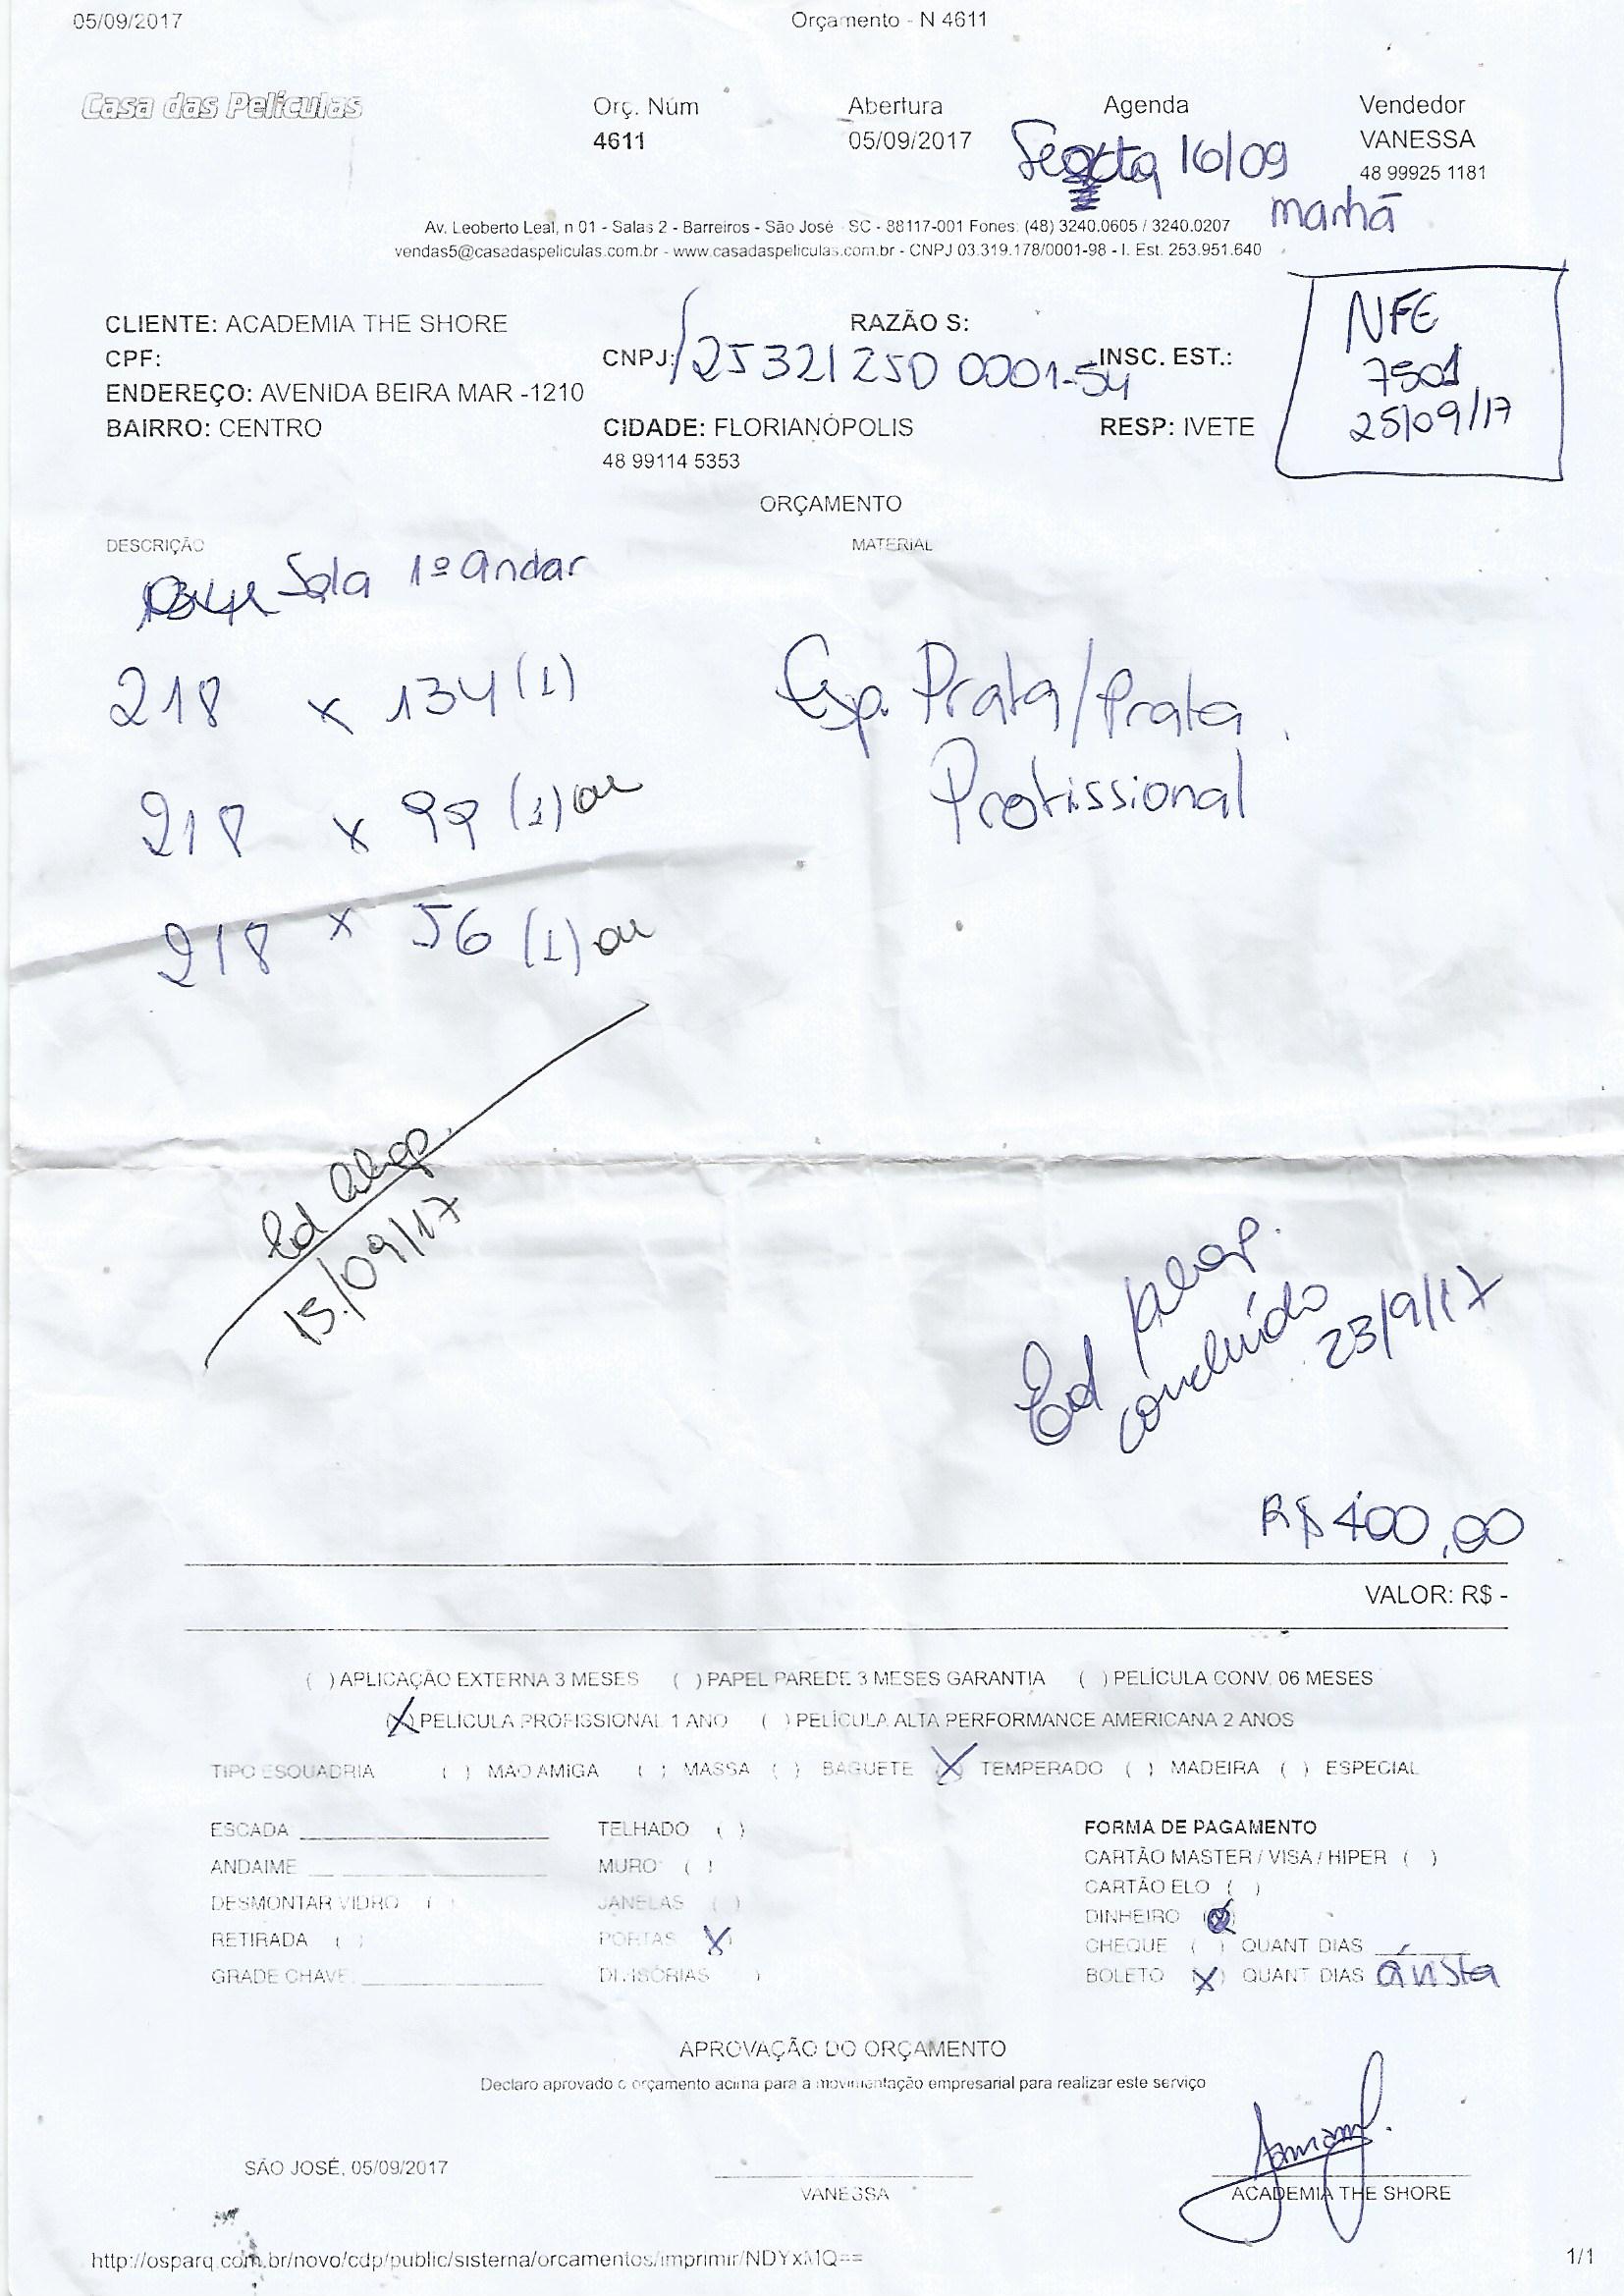 05/09/2017 Orçamento - N 4611
Casa das Películas Orç. Núm Abertura Agenda Vendedor
4611 05/09/2017 Sexta 16/09 VANESSA
48 99925 1181
manhã
Av. Leoberto Leal, n 01 - Salas 2 - Barreiros - São José - SC - 88117-001 Fones: (48) 3240.0605 / 3240.0207
vendas5@casadaspeliculas.com.br - www.casadaspeliculas.com.br - CNPJ 03.319.178/0001-98 - I. Est. 253.951.640
NFE
7501
25/09/17
CLIENTE: ACADEMIA THE SHORE RAZÃO S:
CPF: CNPJ: 25321250 0001-54 INSC. EST.:
ENDEREÇO: AVENIDA BEIRA MAR -1210
BAIRRO: CENTRO CIDADE: FLORIANÓPOLIS RESP: IVETE
48 99114 5353
ORÇAMENTO
DESCRIÇÃO MATERIAL
Sala 1º andar
218 x 134 (1) Esp. Prata/Prata
218 x 99 (1) ou Profissional
218 x 56 (1) ou
Ed
15/09/17
Ed
concluído 23/9/17
R$ 400,00
VALOR: R$ -
( ) APLICAÇÃO EXTERNA 3 MESES ( ) PAPEL PAREDE 3 MESES GARANTIA ( ) PELÍCULA CONV. 06 MESES
(X) PELÍCULA PROFISSIONAL 1 ANO ( ) PELÍCULA ALTA PERFORMANCE AMERICANA 2 ANOS
TIPO ESQUADRIA ( ) MAO AMIGA ( ) MASSA ( ) BAGUETE (X) TEMPERADO ( ) MADEIRA ( ) ESPECIAL
ESCADA TELHADO ( ) FORMA DE PAGAMENTO
ANDAIME MURO ( ) CARTÃO MASTER / VISA / HIPER ( )
DESMONTAR VIDRO ( ) JANELAS ( ) CARTÃO ELO ( )
RETIRADA ( ) PORTAS (X) DINHEIRO
GRADE CHAVE DIVISÓRIAS ( ) CHEQUE ( ) QUANT DIAS
BOLETO (X) QUANT DIAS á vista
APROVAÇÃO DO ORÇAMENTO
Declaro aprovado o orçamento acima para a movimentação empresarial para realizar este serviço
SÃO JOSÉ, 05/09/2017
VANESSA ACADEMIA THE SHORE
http://osparq.com.br/novo/cdp/public/sistema/orcamentos/imprimir/NDYxMQ== 1/1